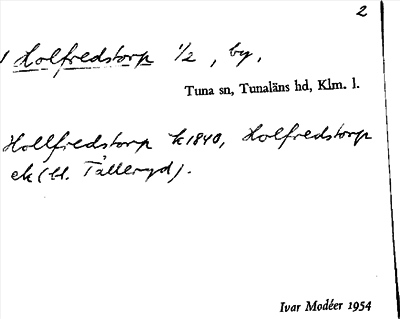 2
Holfredstorp 1/2, by.
Tuna sn, Tunaläns hd, Klm. l.
Hollfredstorp k1840, Holfredstorp
ek (bl. Tålleryd).
Ivar Modéer 1954